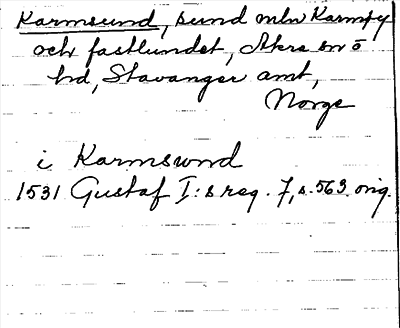 Karmsund, sund mln Karmöy
och fastlandet,
hd, Stavanger amt,
Norge
i Karmswnd
1531 Gustaf I:s reg. 7, s. 563. orig.